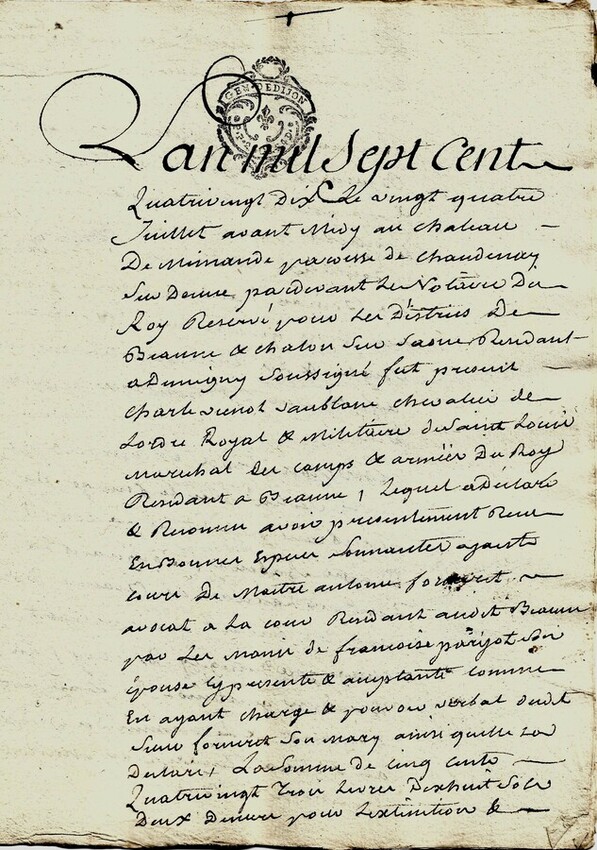 GEN. DE DIJON
L'an mil Sept Cent
Quatrevingt Dix Le vingt quatre
Juillet avant Midy au chateau
De Mimande paroisse de Chaudenay
Sur Deune pardevant Le Notaire Du
Roy Reservé pour Les Districs De
Beaune & chalon sur saone Residant
a Demigny soussigné fut present
Charle vivant chevalier de
Lordre Royal & Militaire de Saint Louis
Marechal des camps & armées du Roy
Residant a Beaune, Lequel a Declaré
& Reconnu avoir presentement Receu
En Bonnes Especes Sonnantes ayants
cours De Maitre antoine forneret
avocat a La cour Residant audit Beaune
par Les Mains de françoise parigot Son
épouse Cy presente & aceptante comme
En ayant charge & pouvoir verbal dudit
Sieur forneret Son Mary ainsi quelle La
Declaré, La Somme de cinq cents
Quatrevingt Trois Livres Dixhuit Sols
Deux Deniers pour Lextinction &